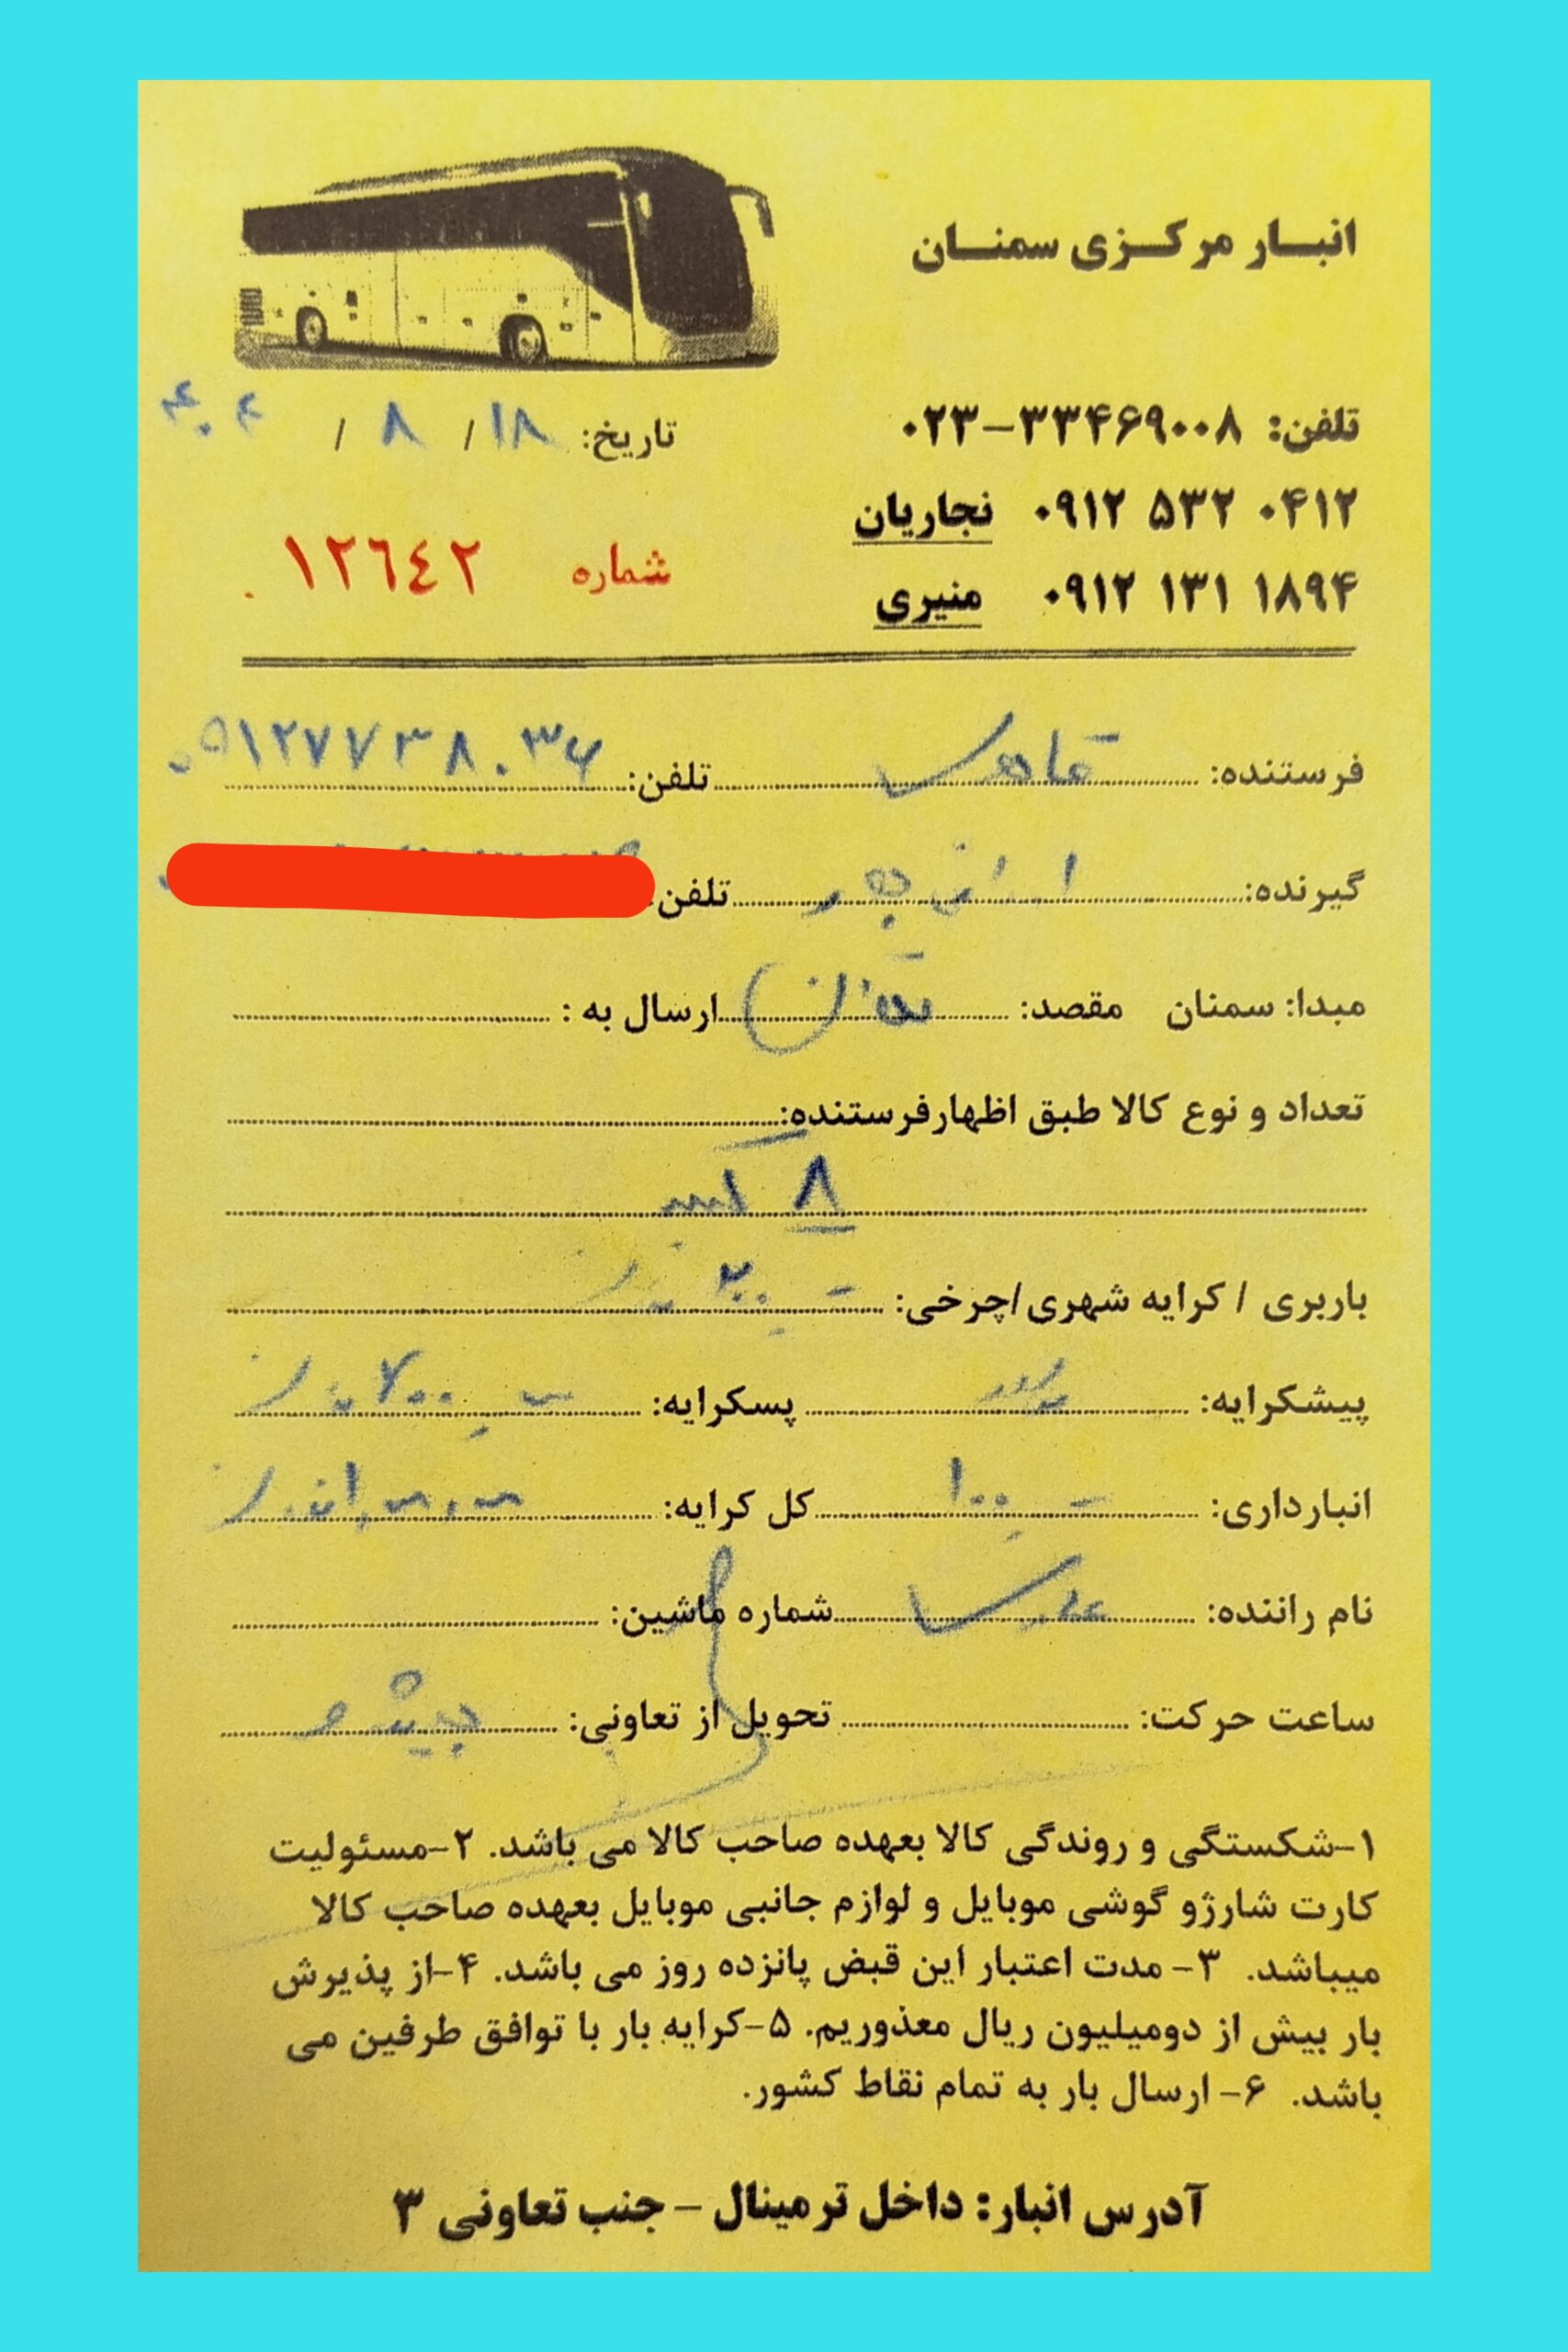 انبار مرکزی سمنان
تلفن: ۳۳۴۶۹۰۰۸-۰۲۳
۰۹۱۲ ۵۳۲ ۰۴۱۲ نجاریان
۰۹۱۲ ۱۳۱ ۱۸۹۴ منیری
تاریخ: ۱۸ / ۸ / ۴۰۴
شماره ۱۲٦٤۲
فرستنده: تلفن: ۰۹۱۲۷۷۳۸۰۳۶
گیرنده: تلفن:
مبدا: سمنان مقصد: تهران ارسال به :
تعداد و نوع کالا طبق اظهارفرستنده:
۸
باربری / کرایه شهری/چرخی:
پیشکرایه: پسکرایه: ۷۰۰
انبارداری: ۱۰۰ کل کرایه:
نام راننده: شماره ماشین:
ساعت حرکت: تحویل از تعاونی:
۱-شکستگی و روندگی کالا بعهده صاحب کالا می باشد. ۲-مسئولیت
کارت شارژو گوشی موبایل و لوازم جانبی موبایل بعهده صاحب کالا
میباشد. ۳- مدت اعتبار این قبض پانزده روز می باشد. ۴-از پذیرش
بار بیش از دومیلیون ریال معذوریم. ۵-کرایه بار با توافق طرفین می
باشد. ۶- ارسال بار به تمام نقاط کشور.
آدرس انبار: داخل ترمینال - جنب تعاونی ۳